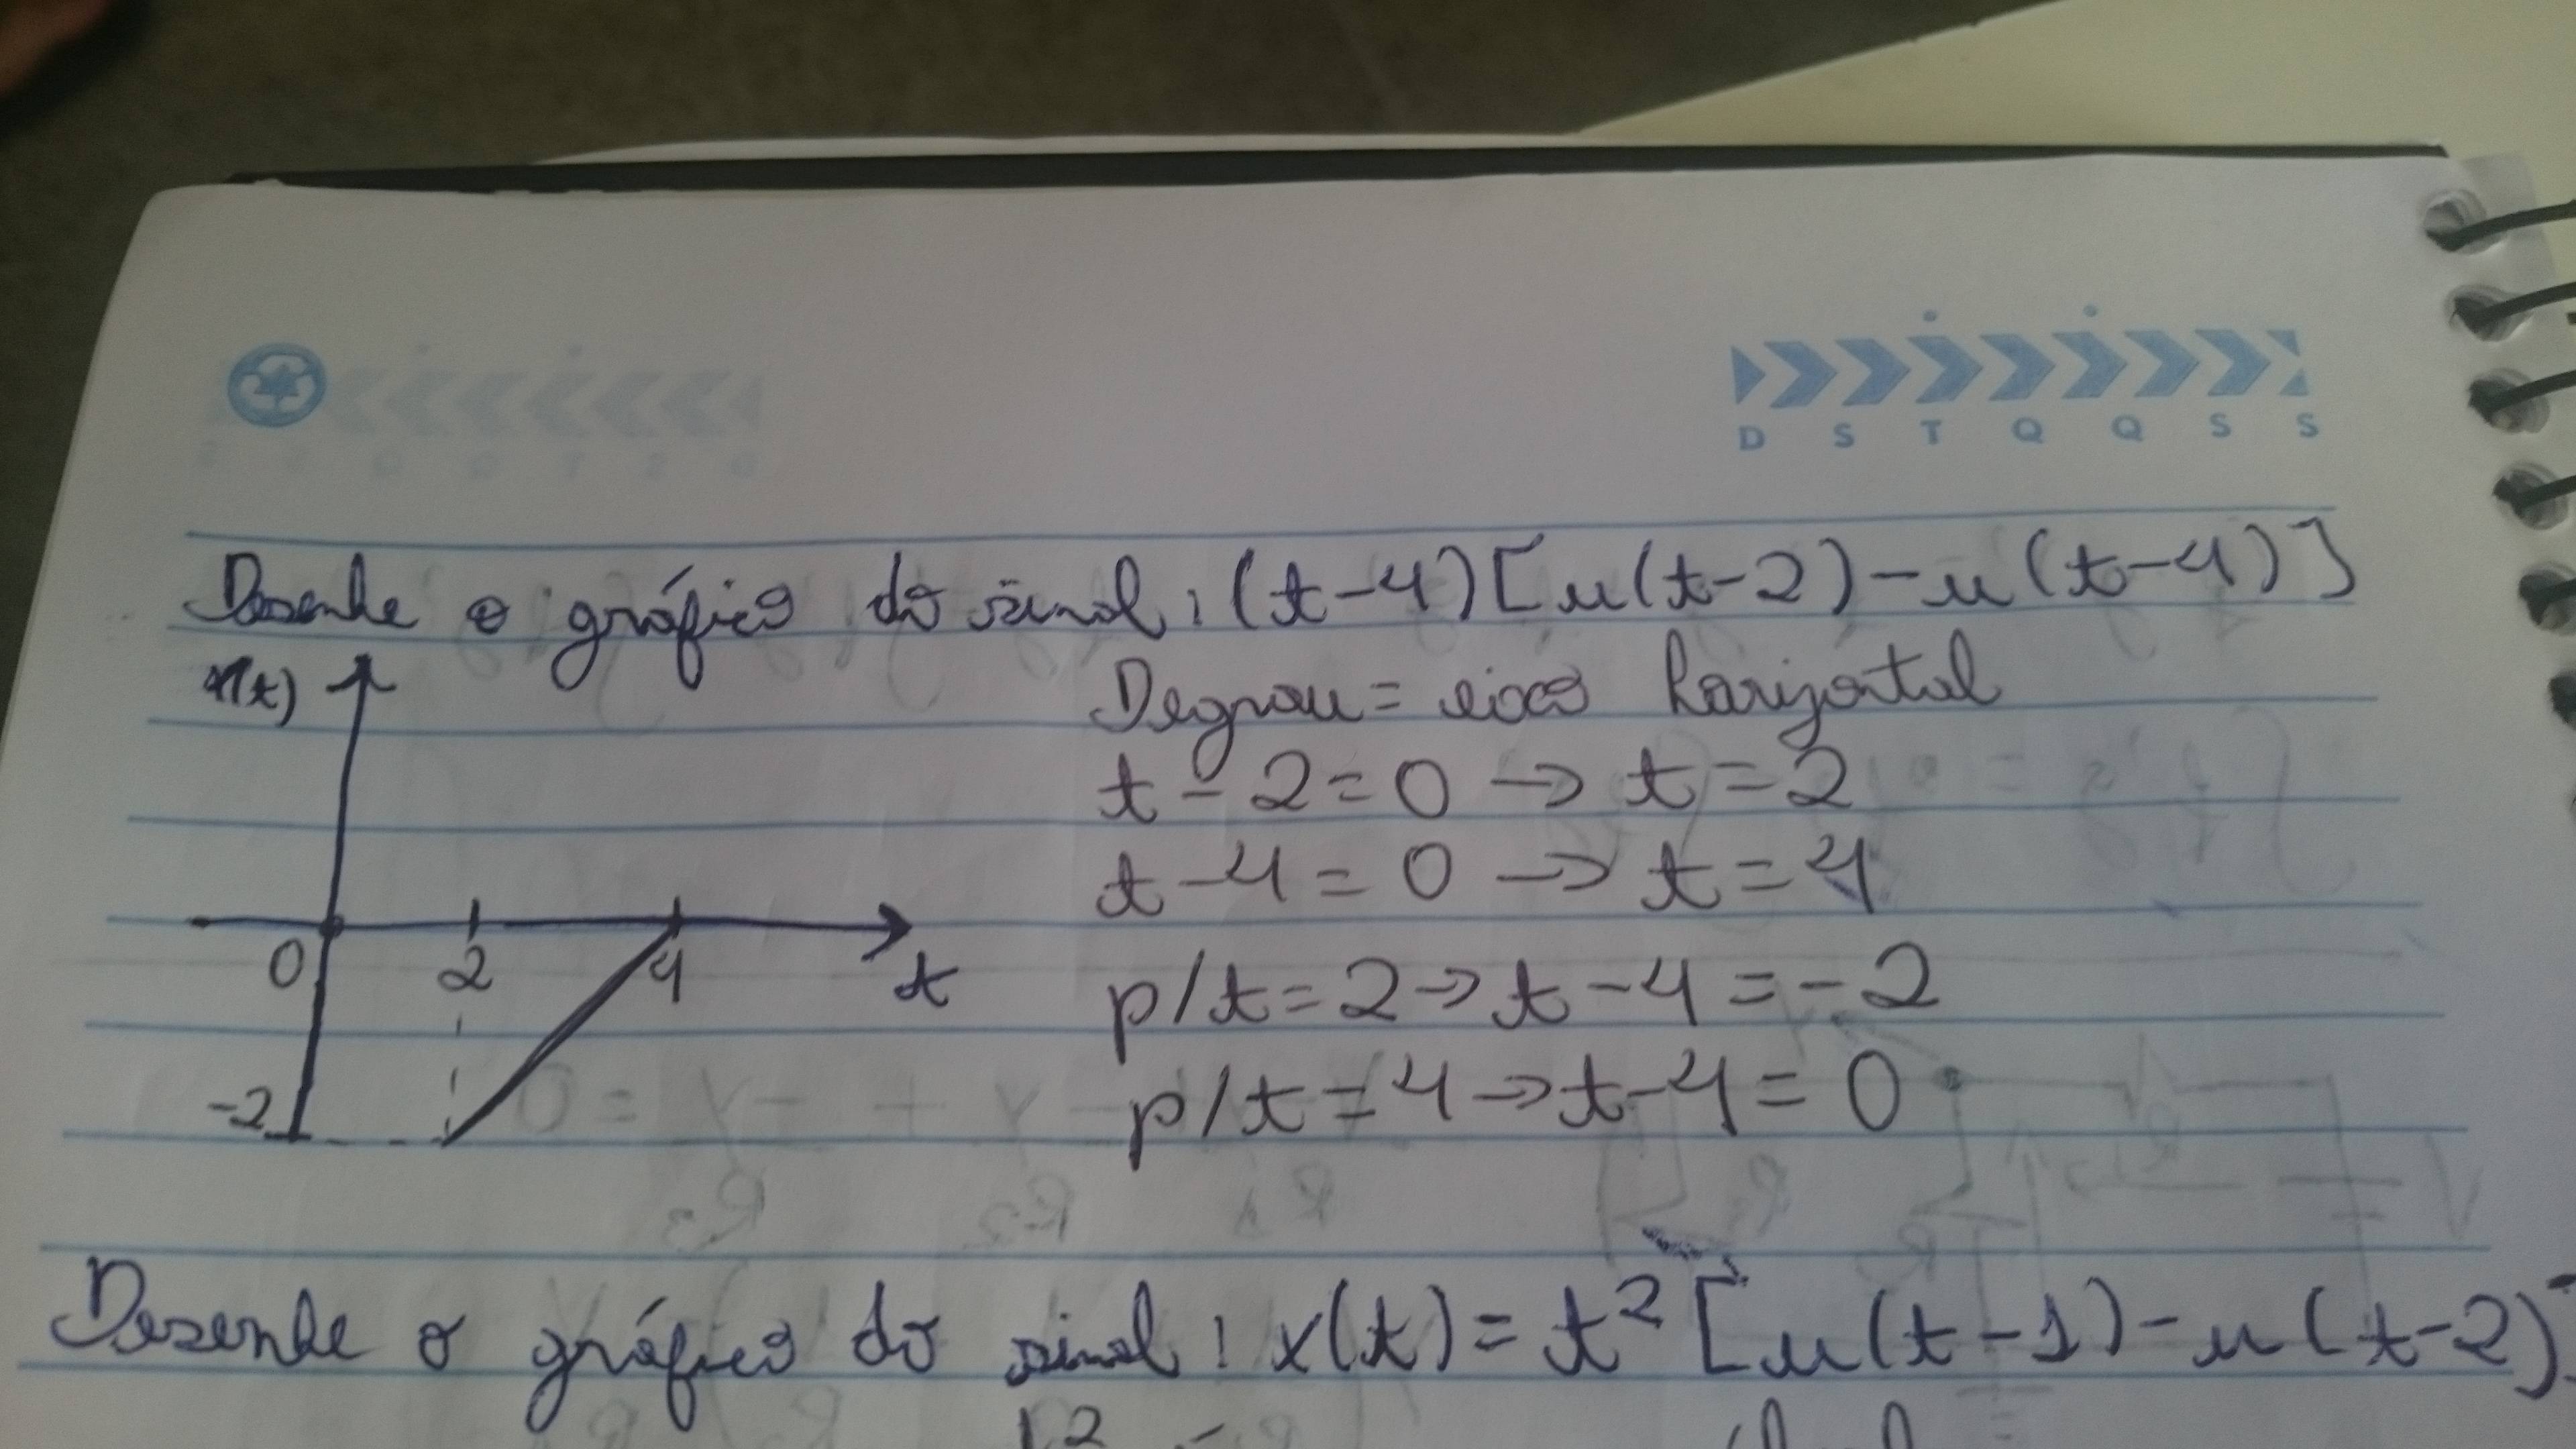 D S T Q Q S S
Desenhe o gráfico do sinal: (t-4)[u(t-2)-u(t-4)]
x(t)
Degrau = eixo horizontal
t-2=0 → t=2
t-4=0 → t=4
0 2 4 t
p/t=2→t-4=-2
-2
p/t=4→t-4=0
Desenhe o gráfico do sinal: x(t)=t²[u(t-1)-u(t-2)]